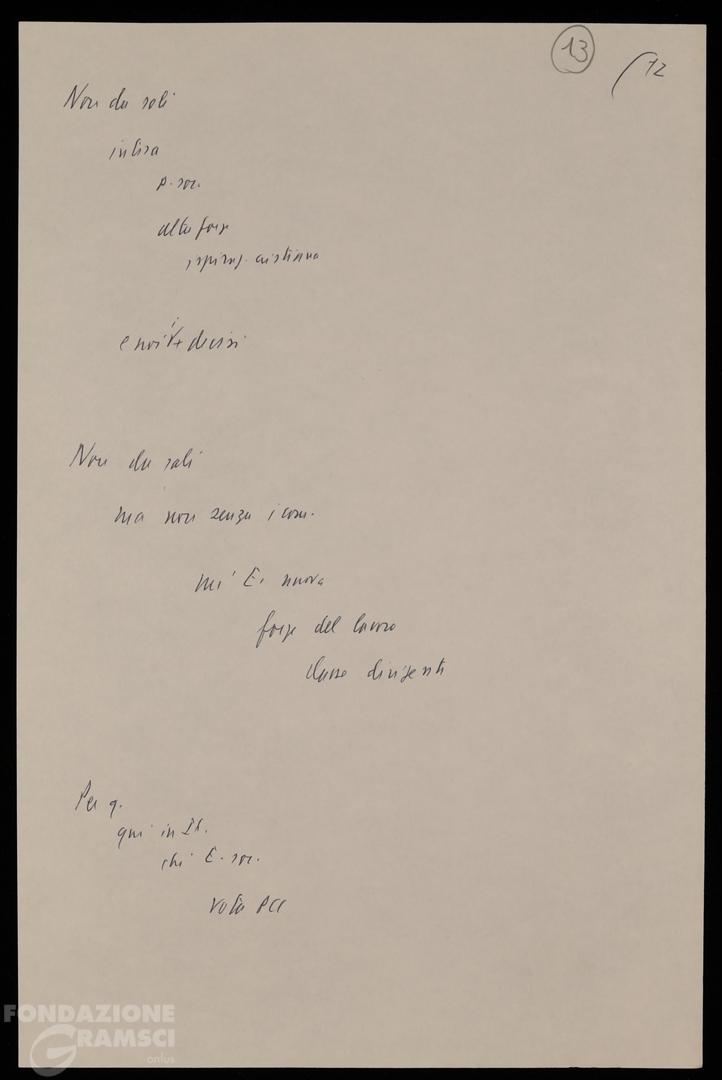 13
12
Non da soli
intesa
p. soc.
altre forze
ispiraz. cristiana
e noi decisi
Non da soli
ma non senza i com.
forze del lavoro
classe dirigente
Per q.
qui in It.
chi E. soc.
vota PCI
FONDAZIONE
GRAMSCI
onlus